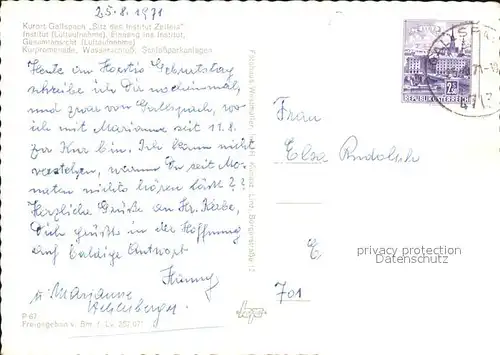 25.8.1971
Kurort Gallspach „Sitz des Institut Zeileis"
Institut (Luftaufnahme), Eingang ins Institut,
Gesamtansicht (Luftaufnahme)
Kurpromenade, Wasserschloß, Schloßparkanlagen
Heute im Geburtstag
schreibe ich Dir nocheinmal,
und zwar von Gallspach, wo
ich mit Marianne seit 11.8.
zur Kur bin. Ich kann nicht
verstehen, warum Du seit Mo-
naten nichts hören läßt??
Herzliche Grüße an Hr.
Dich grüßt in der Hoffnung
auf baldige Antwort
Hanny
u. Marianne
P 67
Freigegeben v. Bm. f. Lv.
REPUBLIK ÖSTERREICH
Frau
Elsa Rudolph
privacy protection
watermark
701